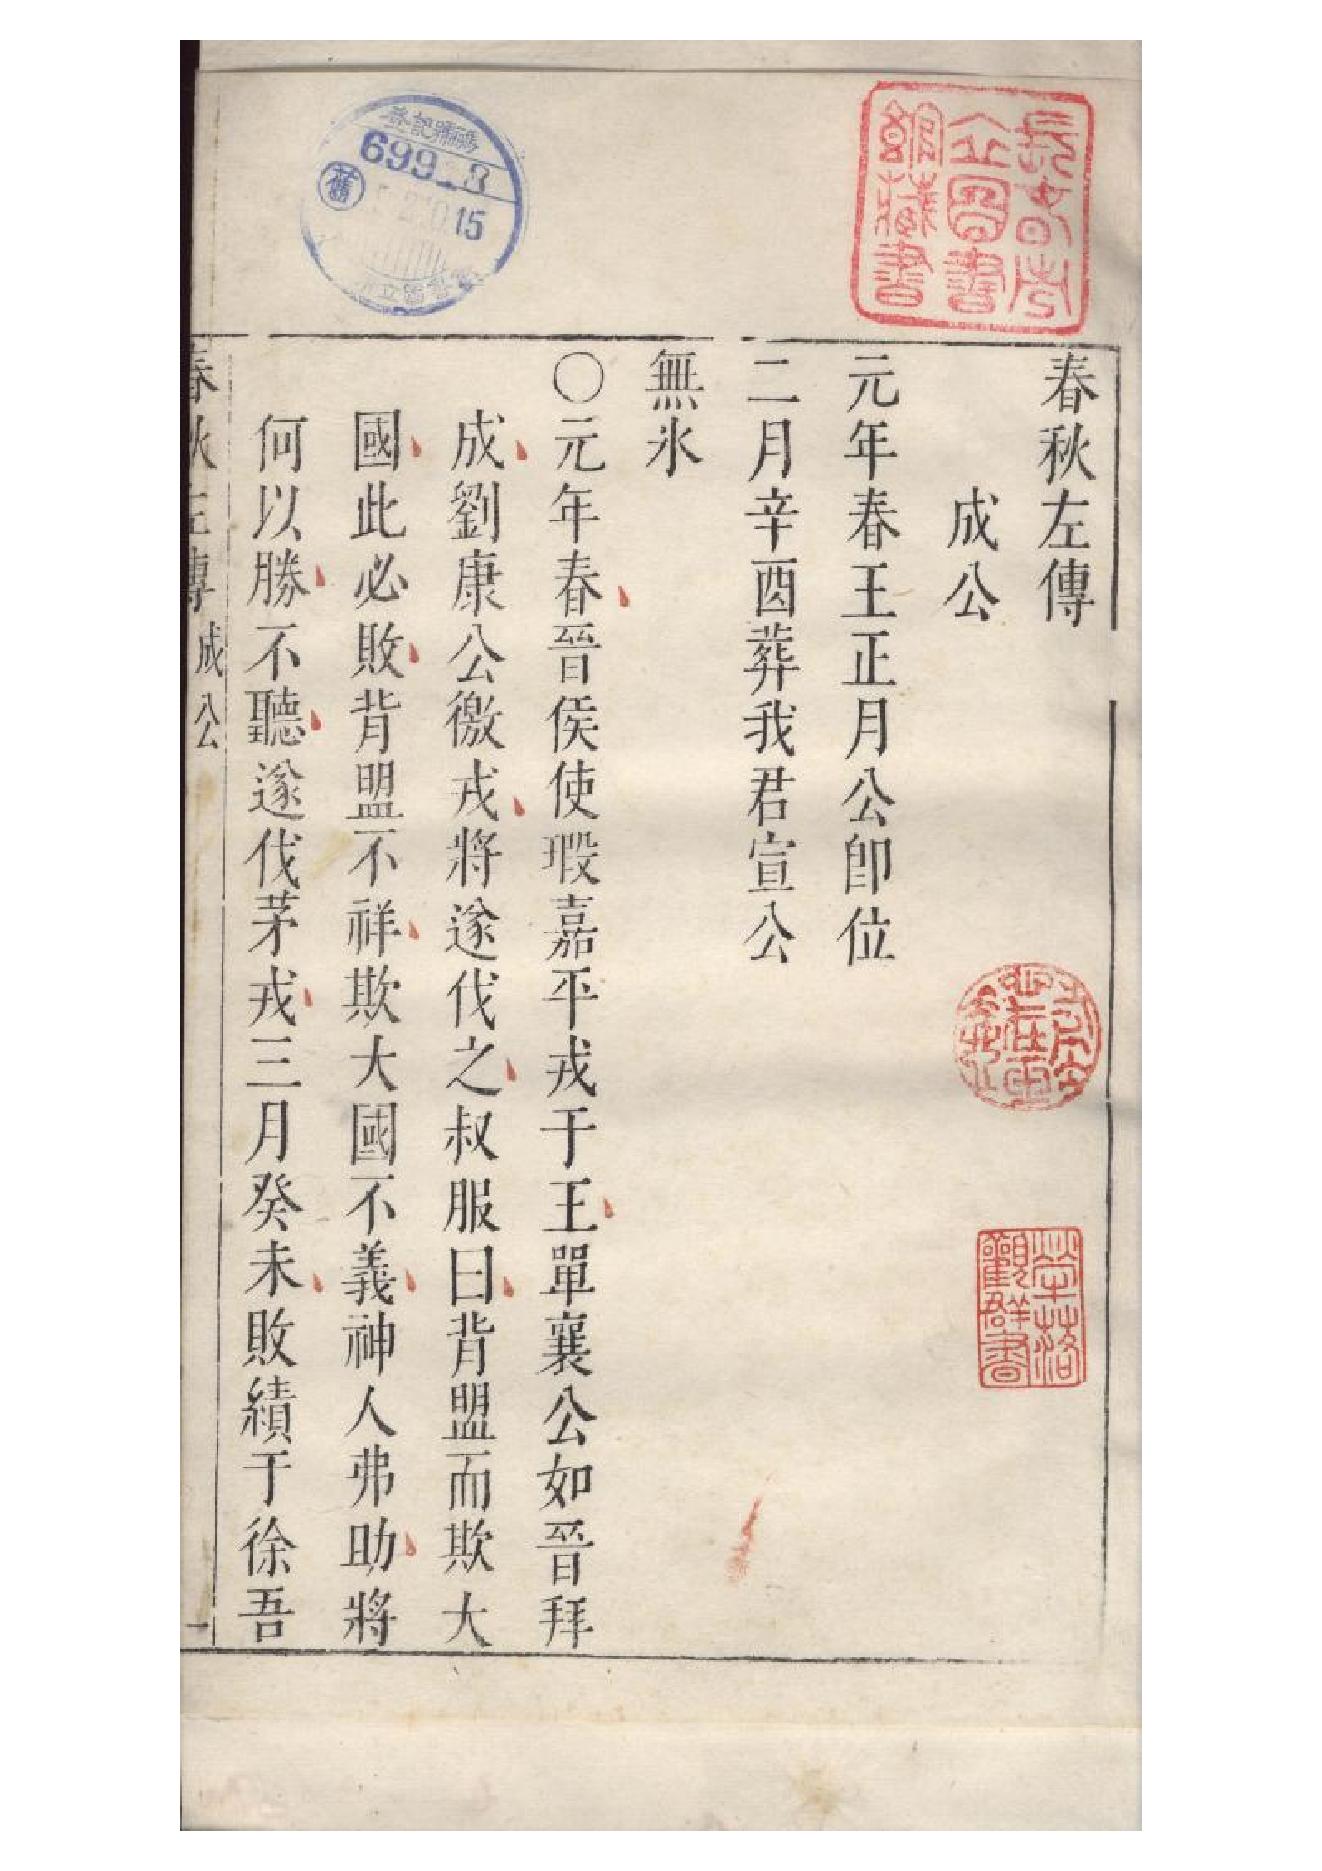 春秋左傳
成公
元年春王正月公卽位
二月辛酉葬我君宣公
無氷
〇元年春晉侯使瑕嘉平戎于王單襄公如晉拜
成劉康公徼戎將遂伐之叔服曰背盟而欺大
國此必敗背盟不祥欺大國不義神人弗助將
何以勝不聽遂伐茅戎三月癸未敗績于徐吾
春秋左傳
成公
一
長春市
立圖書
館藏書
犖落
觀群書
登記號碼
699 3
舊
15
立圖書館